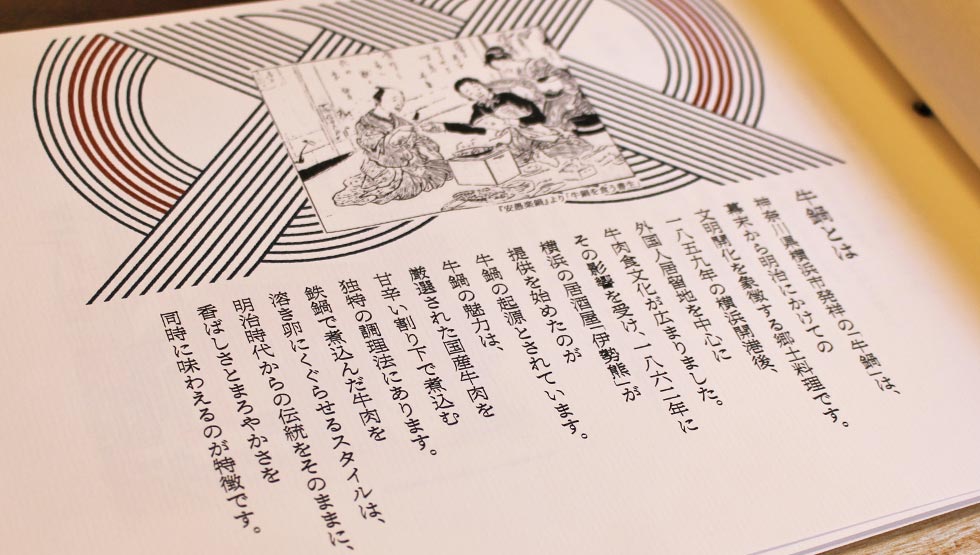 『安愚楽鍋』より「牛鍋を食う書生」
牛鍋とは
神奈川県横浜市発祥の「牛鍋」は、
幕末から明治にかけての
文明開化を象徴する郷土料理です。
一八五九年の横浜開港後、
外国人居留地を中心に
牛肉食文化が広まりました。
その影響を受け、一八六二年に
横浜の居酒屋「伊勢熊」が
提供を始めたのが
牛鍋の起源とされています。
牛鍋の魅力は、
厳選された国産牛肉を
甘辛い割り下で煮込む
独特の調理法にあります。
鉄鍋で煮込んだ牛肉を
溶き卵にくぐらせるスタイルは、
明治時代からの伝統をそのままに、
香ばしさとまろやかさを
同時に味わえるのが特徴です。